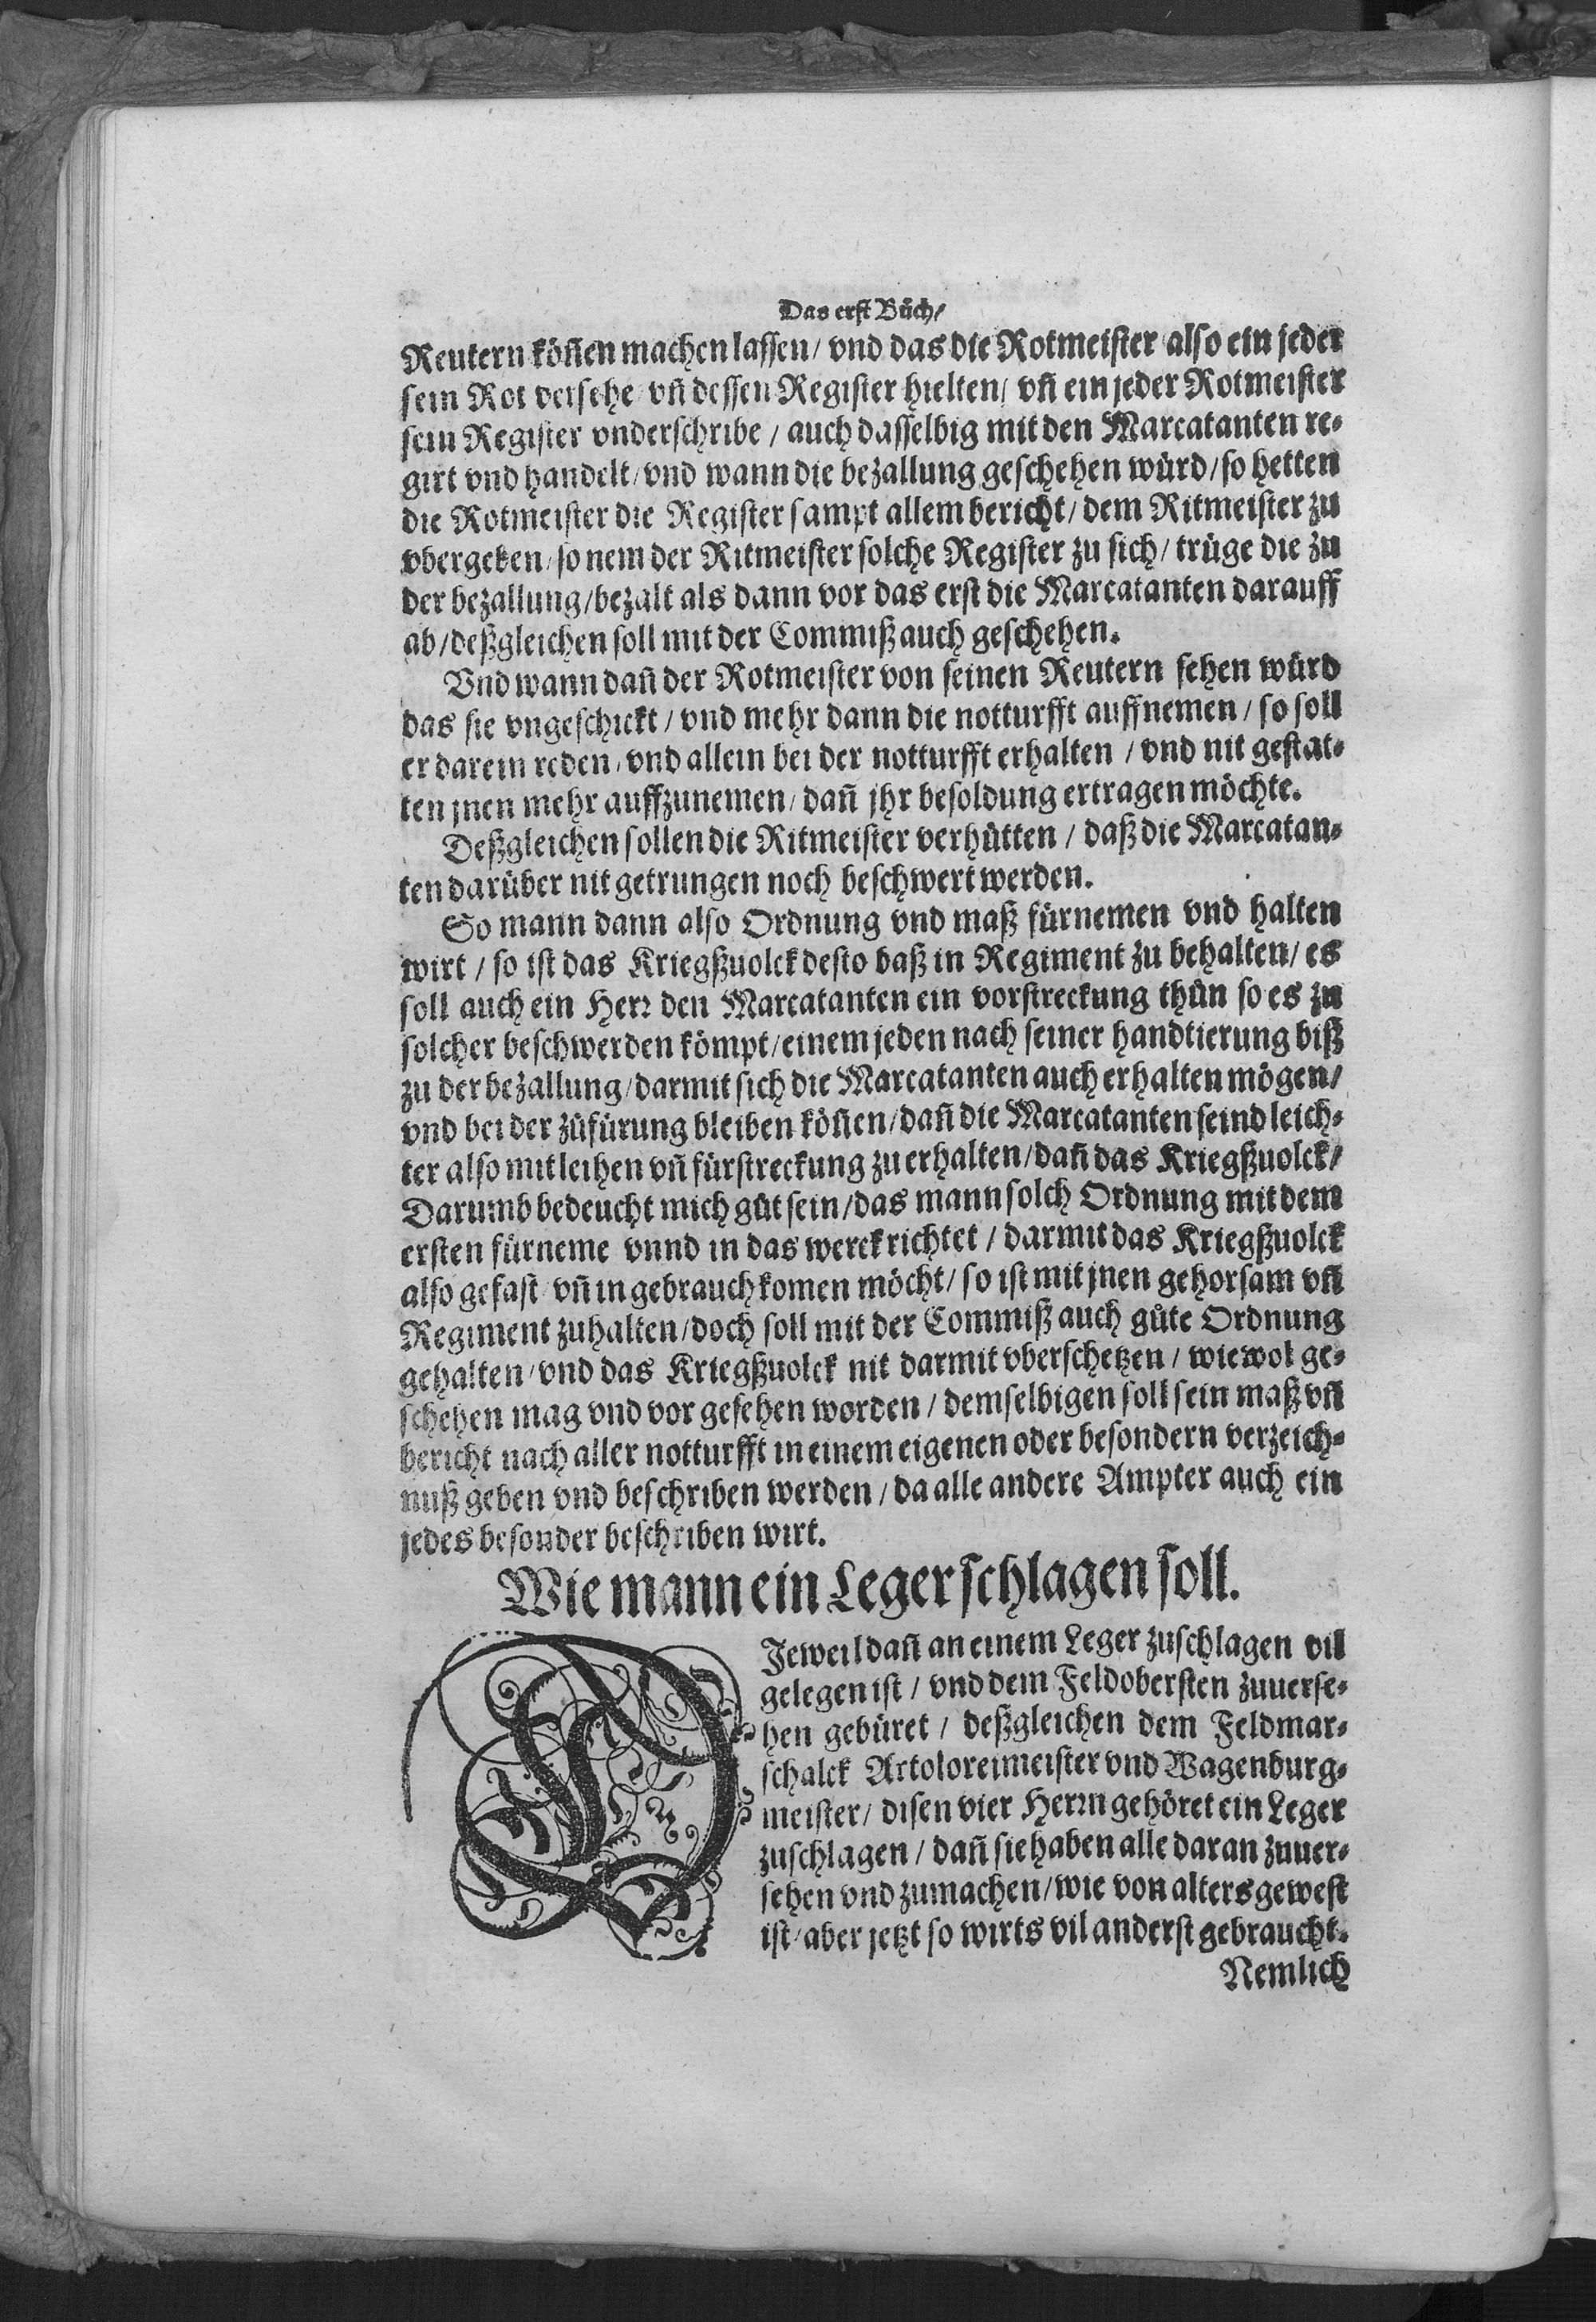 Das erst Bůch/
Reutern kön̄en machen lassen/ vnd das die Rotmeister also ein jeder
sein Rot versehe/ vn̄ dessen Register hielten/ vn̄ ein jeder Rotmeister
sein Register vnderschribe / auch dasselbig mit den Marcatanten re⸗
girt vnd handelt/ vnd wann die bezallung geschehen würd/ so hetten
die Rotmeister die Register sampt allem bericht/ dem Ritmeister zu
vbergeben/ so nem der Ritmeister solche Register zu sich/ trüge die zu
der bezallung/ bezalt als dann vor das erst die Marcatanten darauff
ab/ deßgleichen soll mit der Commiß auch geschehen.
Vnd wann dan̄ der Rotmeister von seinen Reutern sehen würd
das sie vngeschickt / vnd mehr dann die notturfft auffnemen / so soll
er darein reden/ vnd allein bei der notturfft erhalten / vnd nit gestat⸗
ten jnen mehr auffzunemen/ dan̄ jhr besoldung ertragen möchte.
Deßgleichen sollen die Ritmeister verhütten / daß die Marcatan⸗
ten darüber nit getrungen noch beschwert werden.
So mann dann also Ordnung vnd maß fürnemen vnd halten
wirt / so ist das Kriegßuolck desto baß in Regiment zu behalten/ es
soll auch ein Herr den Marcatanten ein vorstreckung thůn so es zu
solcher beschwerden kömpt/ einem jeden nach seiner handtierung biß
zu der bezallung/ darmit sich die Marcatanten auch erhalten mögen/
vnd bei der zůfürung bleiben kön̄en/ dan̄ die Marcatanten seind leich⸗
ter also mit leihen vn̄ fürstreckung zu erhalten/ dan̄ das Kriegßuolck/
Darumb bedeucht mich gůt sein/ das mann solch Ordnung mit dem
ersten fürneme vnnd in das werck richtet / darmit das Kriegßuolck
also gefast/ vn̄ in gebrauch komen möcht/ so ist mit jnen gehorsam vn̄
Regiment zuhalten/ doch soll mit der Commiß auch gůte Ordnung
gehalten/ vnd das Kriegßuolck nit darmit vberschetzen / wiewol ge⸗
schehen mag vnd vor gesehen worden / demselbigen soll sein maß vn̄
bericht nach aller notturfft in einem eigenen oder besondern verzeich⸗
nuß geben vnd beschriben werden / da alle andere Ampter auch ein
jedes besonder beschriben wirt.
Wie mann ein Leger schlagen soll.
DJeweil dan̄ an einem Leger zuschlagen vil
gelegen ist / vnd dem Feldobersten zuuerse⸗
hen gebüret / deßgleichen dem Feldmar⸗
schalck Artoloreimeister vnd Wagenburg⸗
meister/ disen vier Herrn gehöret ein Leger
zuschlagen / dan̄ sie haben alle daran zuuer⸗
sehen vnd zumachen/ wie von alters gewest
ist/ aber jetzt so wirts vil anderst gebraucht.
Nemlich